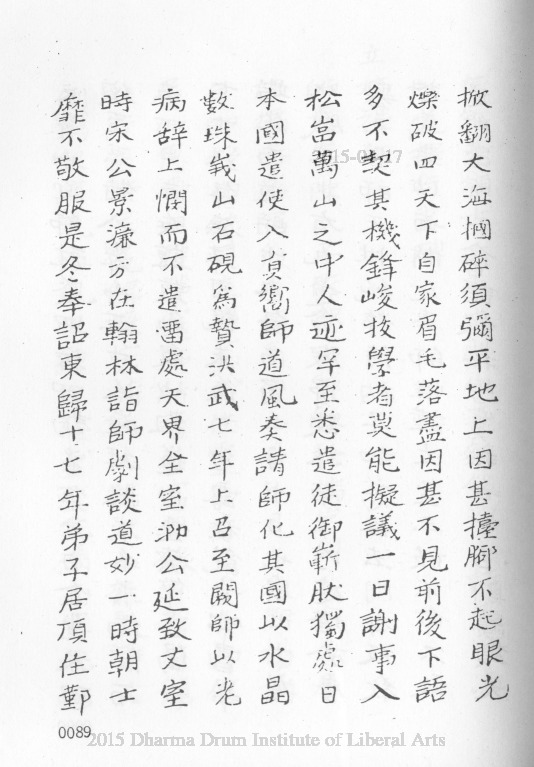 掀翻大海摑碎須彌平地上因甚擡腳不起眼光
爍破四天下自家眉毛落盡因甚不見前後下語
多不契其機鋒峻拔學者莫能擬議一日謝事入
松峦萬山之中人迹罕至悉遣徒御嶄然獨處日
本國遣使入貢嚮師道風奏請師化其國以水晶
數珠峩山石硯為贄洪武七年上召至闕師以老
病辞上憫而不遣畱處天界全室泐公延致丈室
時宋公景濂方在翰林詣師劇談道妙一時朝士
靡不敬服是冬奉詔東歸十七年弟子居頂住鄞
0089
2015 Dharma Drum Institute of Liberal Arts